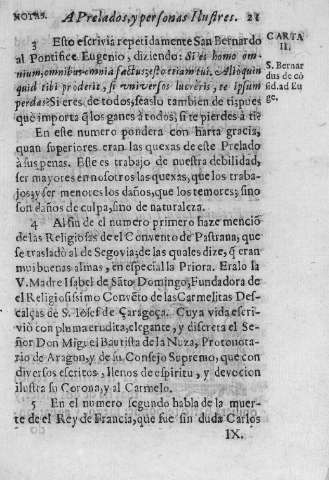 NOTAS. A Prelados, y personas Ilustres. 21
3 Esto escriviò repetidamente San Bernardo
al Pontifice Eugenio, diziendo: Si es homo om-
nium, omnibus omnia factus; esto etiam tui, Alioquin
quid tibi proderit, si vniversos lucreris, te ipsum
perdas? Si eres de todos, seaslo tambien de ti; pues
que importa q̃ los ganes à todos, si te pierdes à ti?
En este numero pondera con harta gracia,
quan superiores eran las quexas de este Prelado
à sus penas. Este es trabajo de nuestra debilidad,
ser mayores en nosotros las quexas, que los traba-
jos; y ser menores los daños, que los temores; sino
son daños de culpa, sino de naturaleza.
4 Al fin de el numero primero haze menciõ
de las Religiosas de el Convento de Pastrana, que
se trasladò al de Segovia; de las quales dize, q̃ eran
mui buenas almas, en especial la Priora. Eralo la
V. Madre Isabel de Sãto Domingo, Fundadora de
el Religiosissimo Convẽto de las Carmelitas Des-
calças de S. Iosef de Çaragoça. Cuya vida escri-
viò con pluma erudita, elegante, y discreta el Se-
ñor Don Miguel Bautista de la Nuza, Protonota-
rio de Aragon, y de su Consejo Supremo, que con
diversos escritos, llenos de espiritu, y devocion
ilustra su Corona, y al Carmelo.
5 En el numero segundo habla de la muer-
te de el Rey de Francia, que fue sin duda Carlos
IX.
CARTA
II.
S. Bernar
dus de cõ
sid. ad Eu
ge.